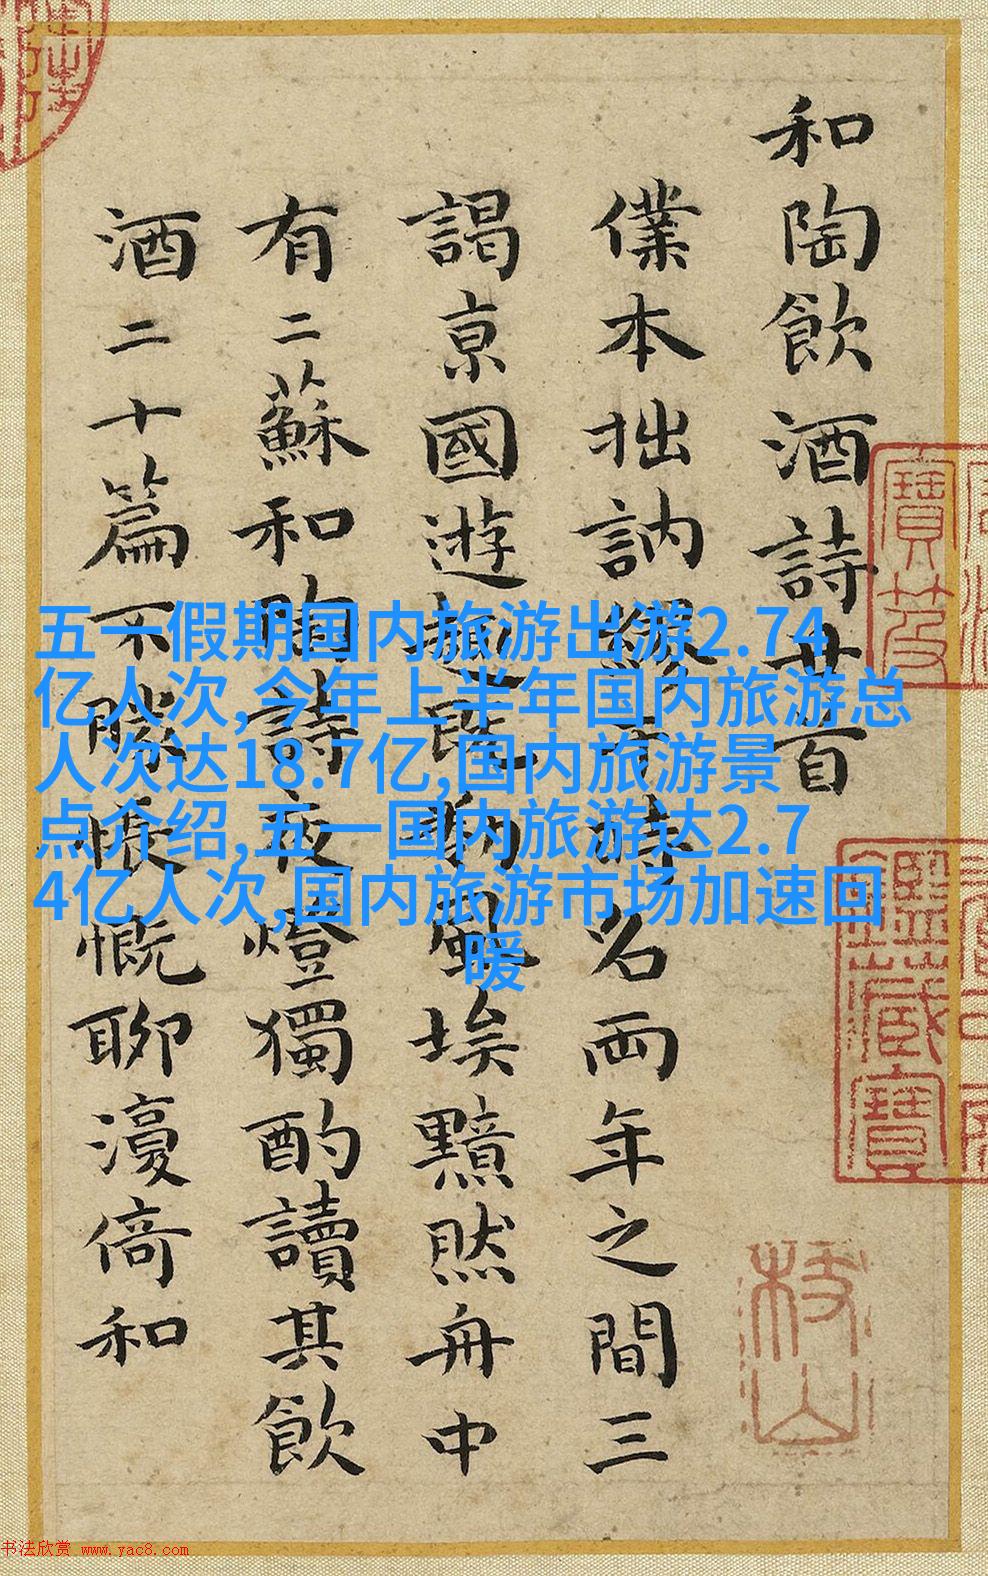 和陶飲酒詩廿首
僕本拙訥繆時名兩年之間三
謁亰國遊風埃黯然舟中
有二蘇和陶詩夜燈獨酌讀其飲
酒二十篇不勝悵慨聊倚和
五一假期国内旅游出游2.74
亿人次,今年上半年国内旅游总
人次达18.7亿,国内旅游景
点介绍,五一国内旅游达2.7
4亿人次,国内旅游市场加速回
暖
寶笈
鑑藏寶
枝山
书法欣赏 www.yac8.com